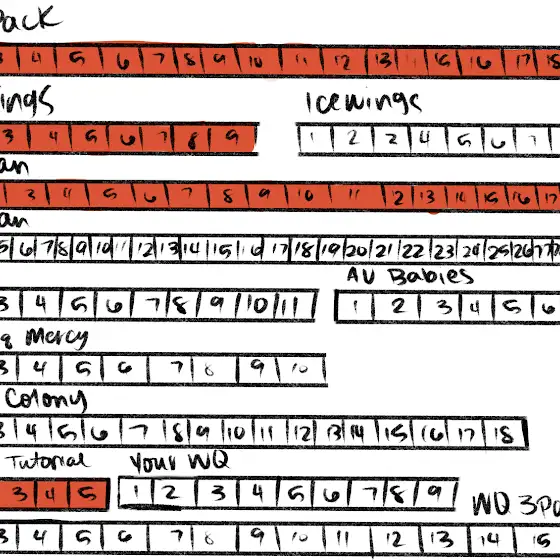 Pack
3 4 5 6 7 8 9 10 11 12 13 15 16 17 18
ings Icewings
3 4 5 6 7 8 9 1 2 3 4 5 6 7
an
3 4 5 6 7 8 9 10 11 12 13 14 15 16 17
an
5 6 7 8 9 10 11 12 13 14 15 16 17 18 19 20 21 22 23 24 25 26 27
AU Babies
3 4 5 6 7 8 9 10 11 1 2 3 4 5 6
Mercy
3 4 5 6 7 8 9 10
Colony
3 4 5 6 7 8 9 10 11 12 13 14 15 16 17 18
Tutorial Your WQ
3 4 5 1 2 3 4 5 6 7 8 9 WQ 3Pa
3 4 5 6 7 8 9 10 11 12 13 14 15